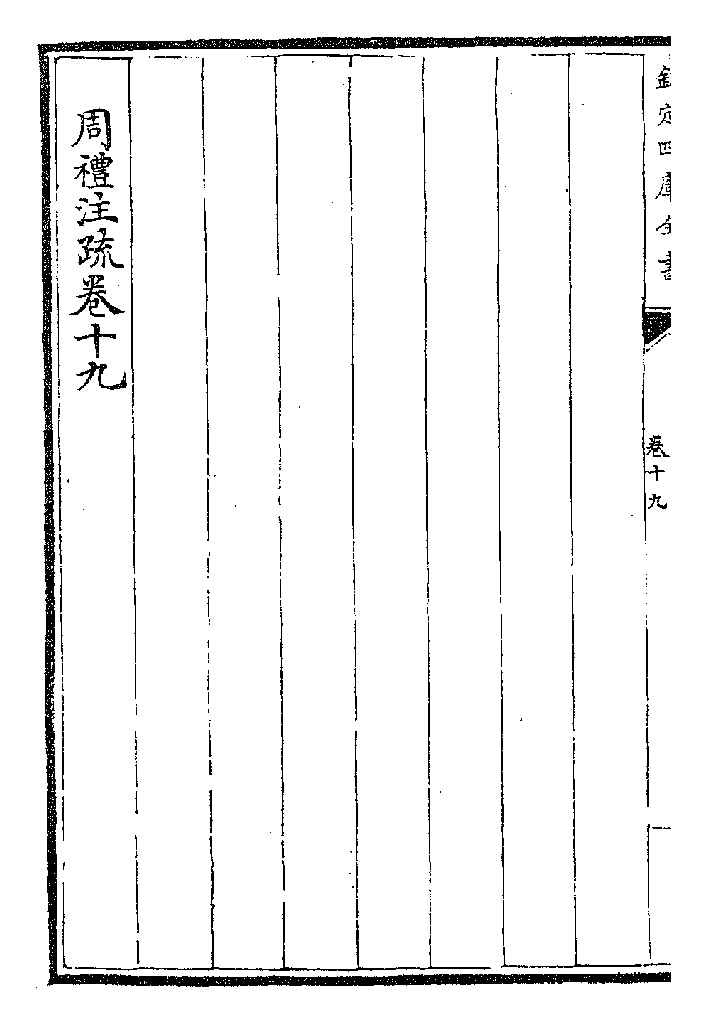 欽定四庫全書
卷十九
周禮注疏卷十九